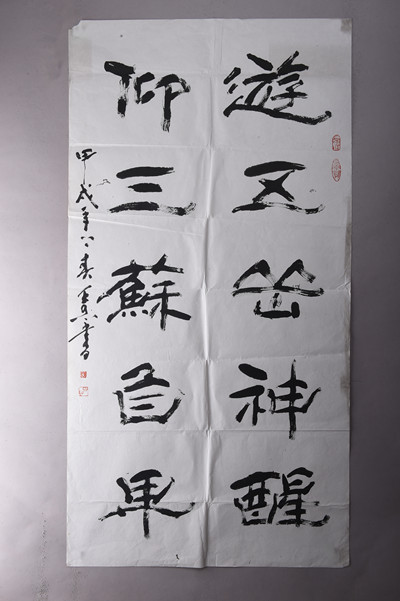 遊五岳神醒
仰三蘇自卑
甲戌年春書